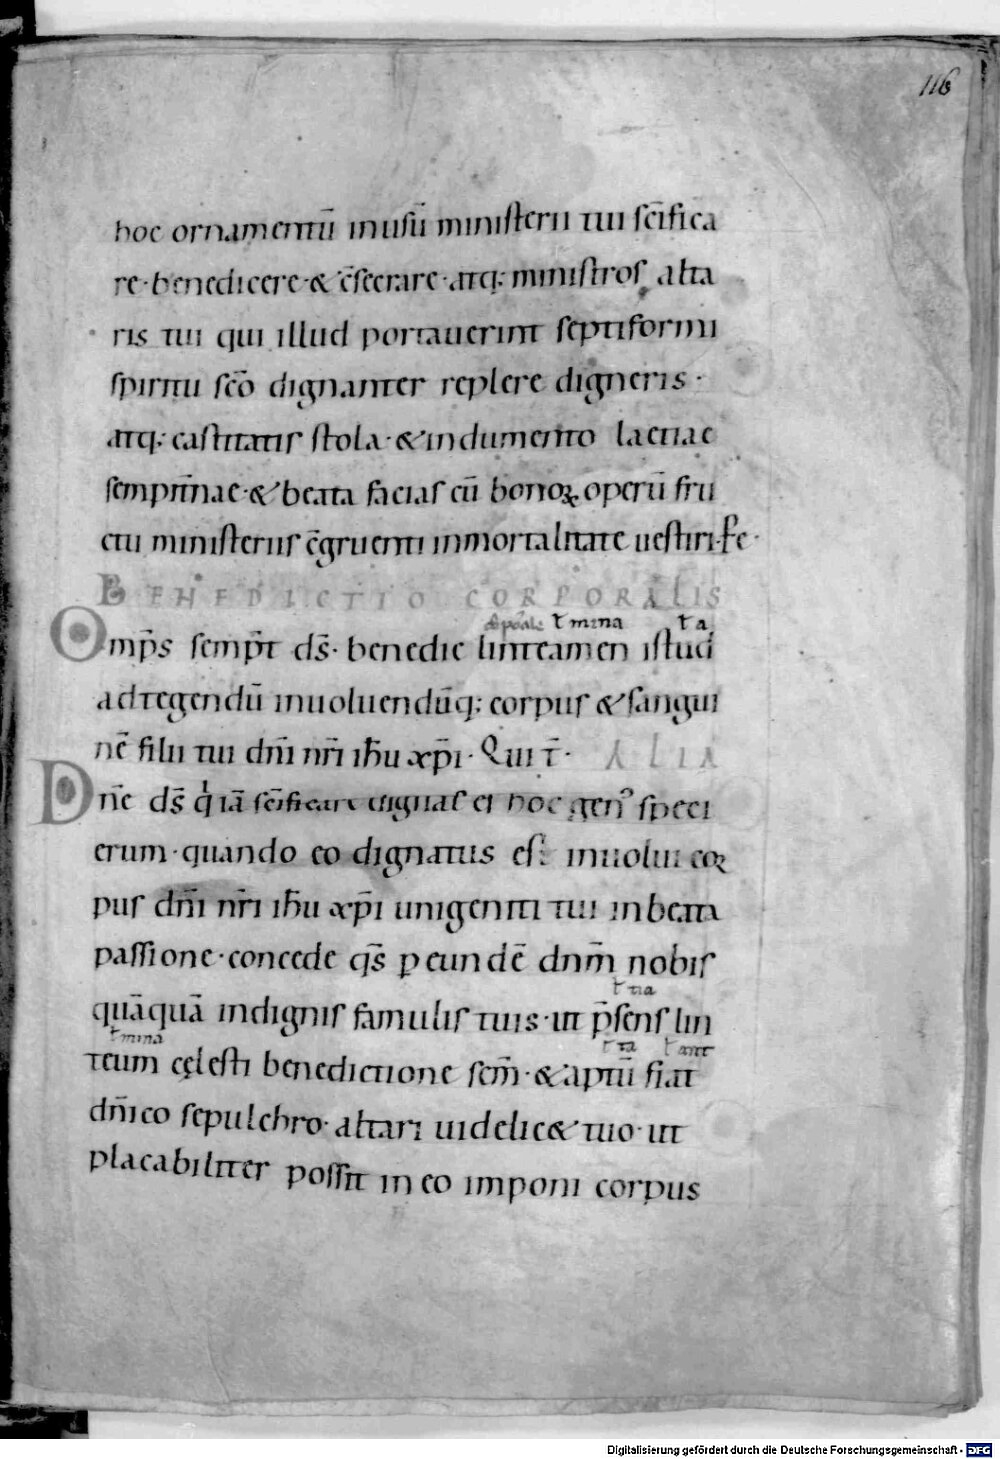 116
hoc ornamentū in usū ministerii tui scīfica
re · benedicere · & cōsecrare · atq; ministros alta
ris tui qui illud portauerint septiformi
spiritu scō dignanter replere digneris ·
atq; castitatis stola · & indumento laetitiae
sempitn̄ae · & beata facias cū bonoꝝ operū fru
ctu ministeriis cōgruenti inmortalitate uestiri ·
BENEDICTIO CORPORALIS
ł mina ł ta
Omp̄s semp̄t d̄s · benedic linteamen istud
ad tegendū inuoluendūq; corpus & sangui
nē filii tui dn̄i nr̄i ih̄u xp̄i · Qui t̄ · ALIA
Dn̄e d̄s scīficare dignat'es et hoc gen' speci
erum · quando eo dignatus es inuolui coꝛ
pus dn̄i nr̄i ih̄u xp̄i unigeniti tui in beata
passione · concede q̄s p eundē dnm̄ nobis
ł tia
quāquā indignis famulis tuis · ut p̄sens lin
ł mina ł ta ł ant
teum cęlesti benedictione scm̄ · & aptū fiat
dn̄ico sepulchro · altari uidelic& tuo · ut
placabiliter possit in eo imponi corpus
Digitalisierung gefördert durch die Deutsche Forschungsgemeinschaft - DFG